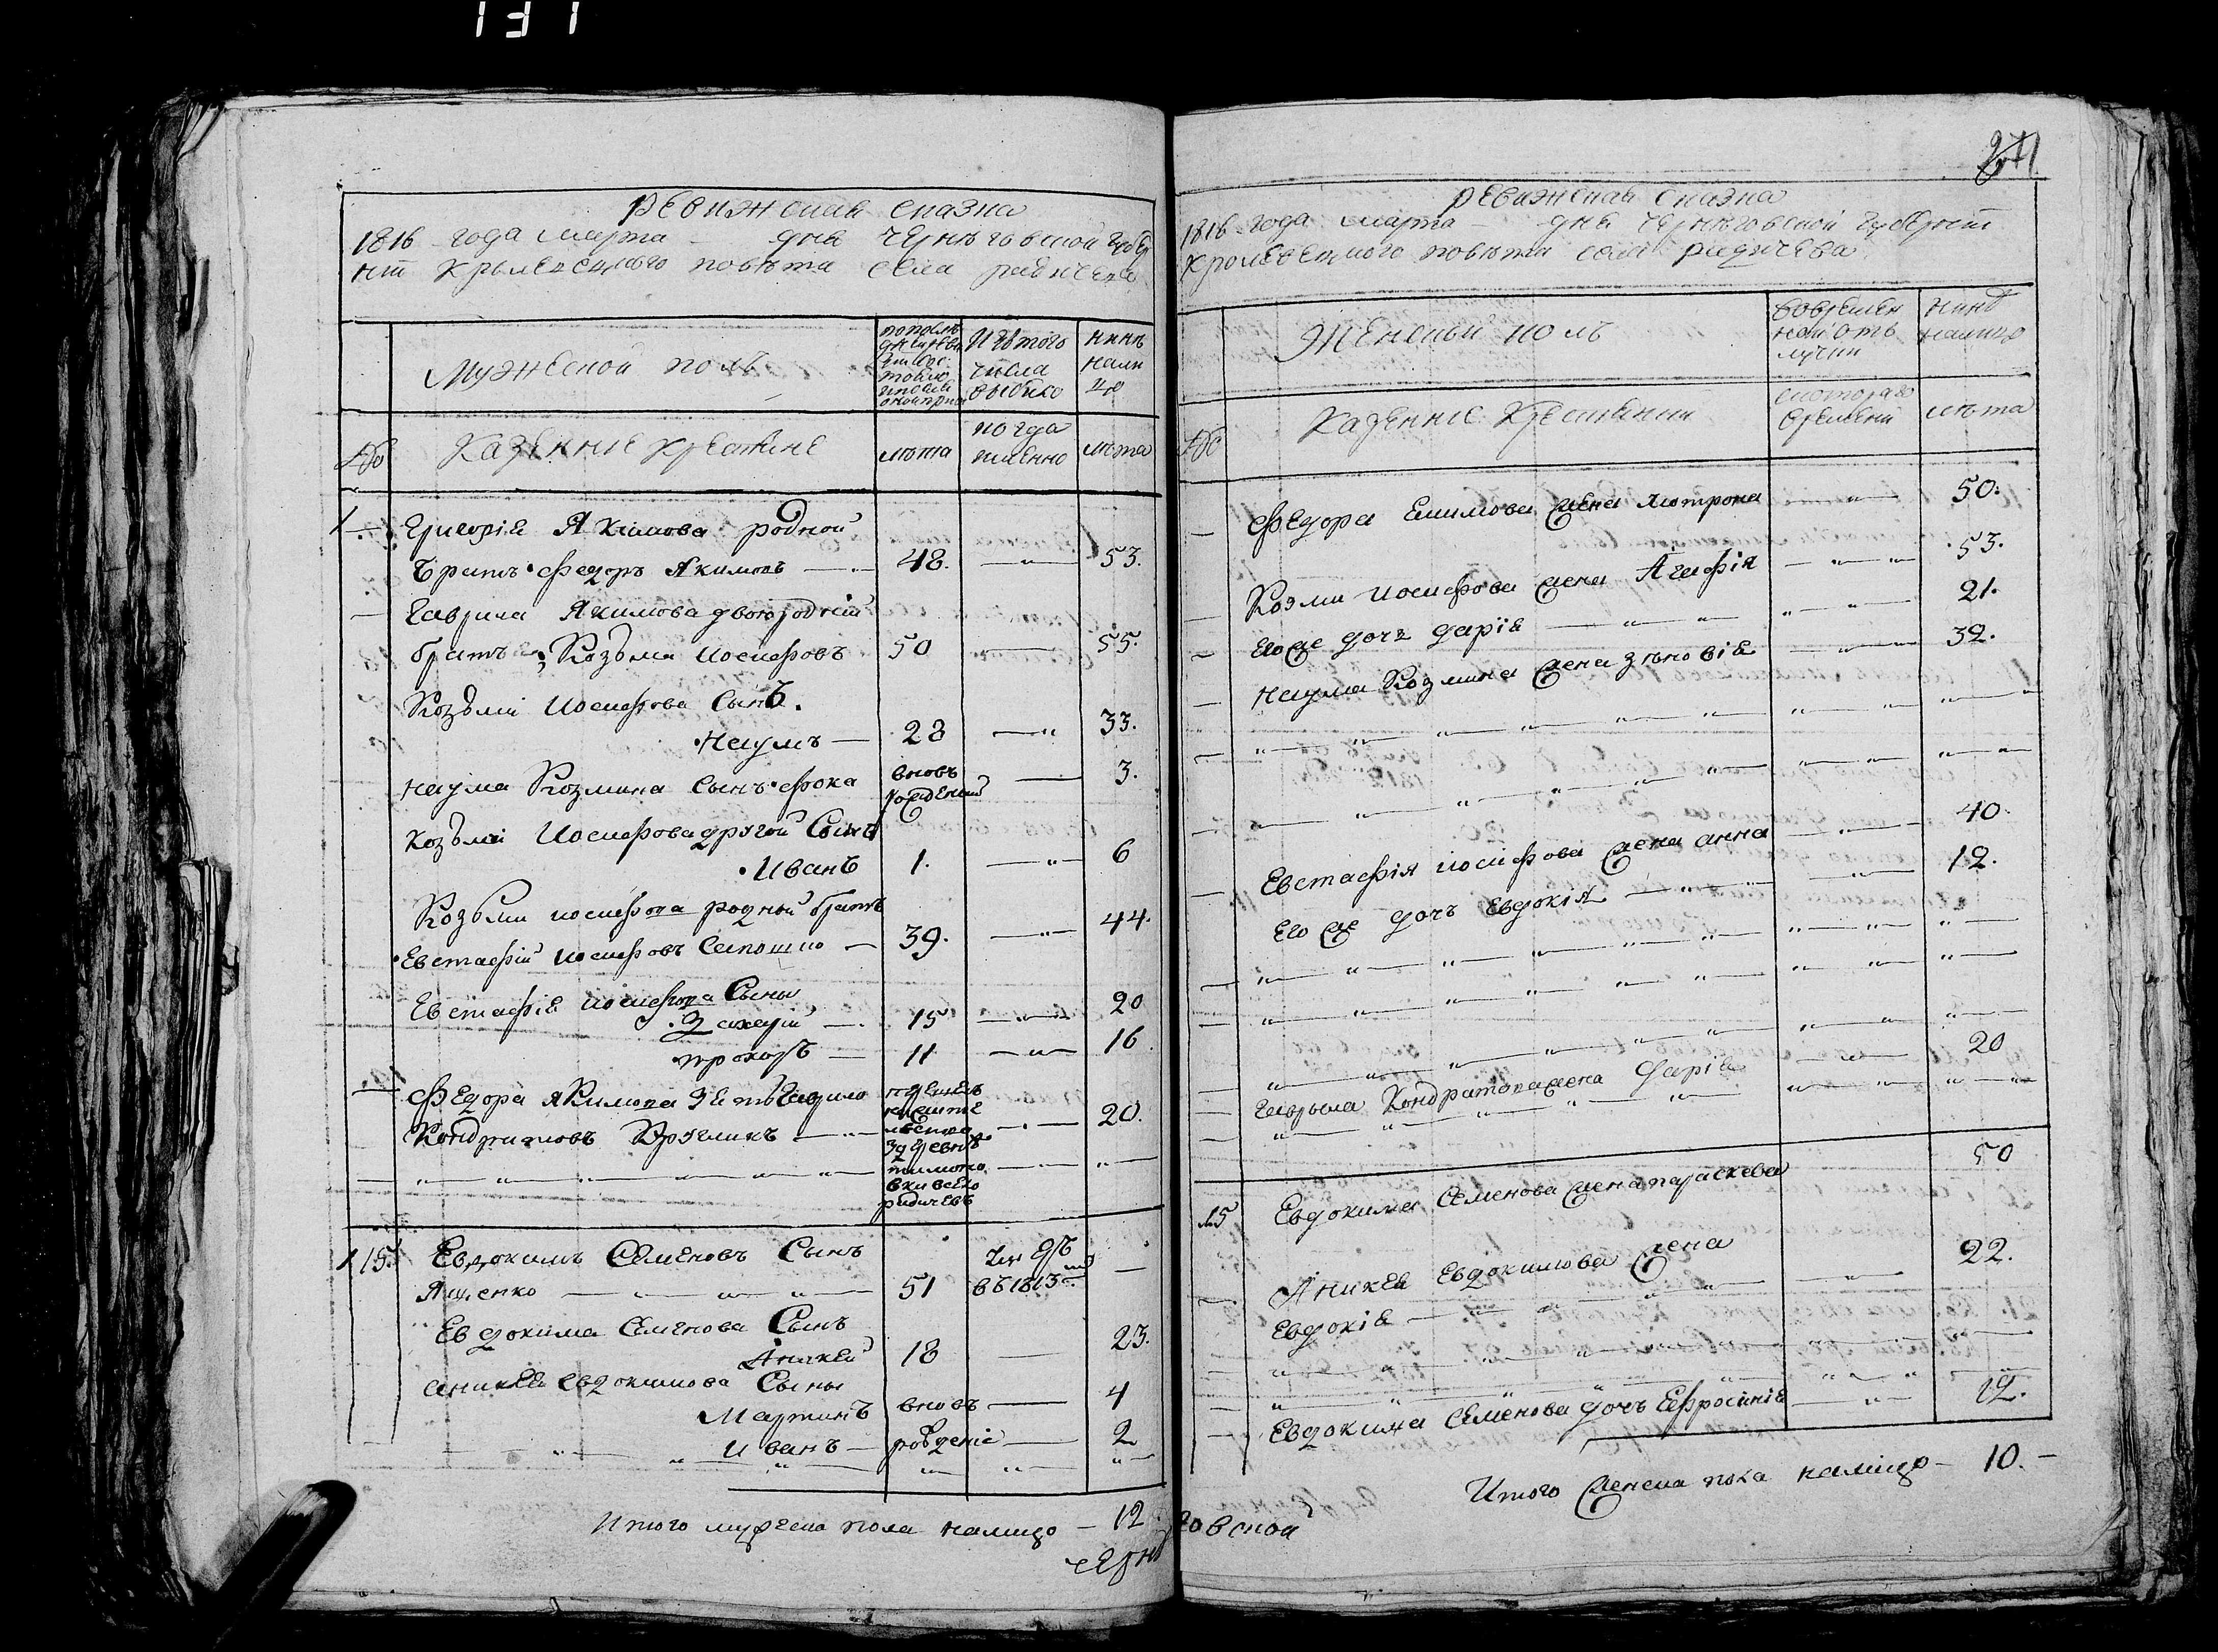 131
Ревижская сказка
1816 года марта — дня Черниговской Губер
нии Кролевецкаго повета села радичева
Мужеской полъ
Изътого
числа
выбило
нинѣ
нали
цо
№
Казенние крестяне
лѣта
когда
именно
лѣта
1
Григорія Якимова родной
братъ Федоръ Якимовъ — 48. — 53.
Гаврила Якимова двоюродній
братъ Козъма Иосифовъ 50 — 55.
Козъми Иосифова Сынъ.
Наумъ — 28 — 33.
Наума Козмина Сынъ Фока вновь рожденый — 3.
Козъми Иосифова другой Сынъ
Иванъ 1. — 6
Козъми иосифова родный братъ
Евстафій иосифовъ — 39. — 44.
Евстафія иосифова Сыны
Захарій — 15 — 20
прокопъ — 11 — 16
Федора Якимова Зять Гаврило
Кондратовъ — 20.
радичевъ
15.
Евдокимъ Семеновъ Сынъ
Ященко — 51 въ 1813 —
Евдокима Семенова Сынъ
Аникей 18 — 23.
Аникея Евдокимова Сыны
Мартинъ вновь — 4
Иванъ — рождение — 2
Итого мужеска пола налицо — 12
Черни
271
Ревижская сказка
1816 года марта — дня Черниговской Губернии
Кролевецкого повета села радичева
Женский полъ
вовремен
ной отъ
лучки
нинѣ
налицо
№
Казенние Крестянки
скоторого
времени
лѣта
Федора Екимова жена Мотрона — 50.
Козми Иосифова жена Агафія — 53.
Его же дочь дарія — 21.
Наума Козмина жена зѣновія — 32.
Евстафія иосифова жена анна — 40.
Его же дочъ Евдокія — 12.
Гаврыла Кондратова жена Дарія — 20
15
Евдокима Семенова жена параскева 50
Аникея Евдокимова жена
Евдокія — 22.
Евдокима Семенова дочъ Ефросинія — 12.
Итого женска пола налицо — 10. —
говской